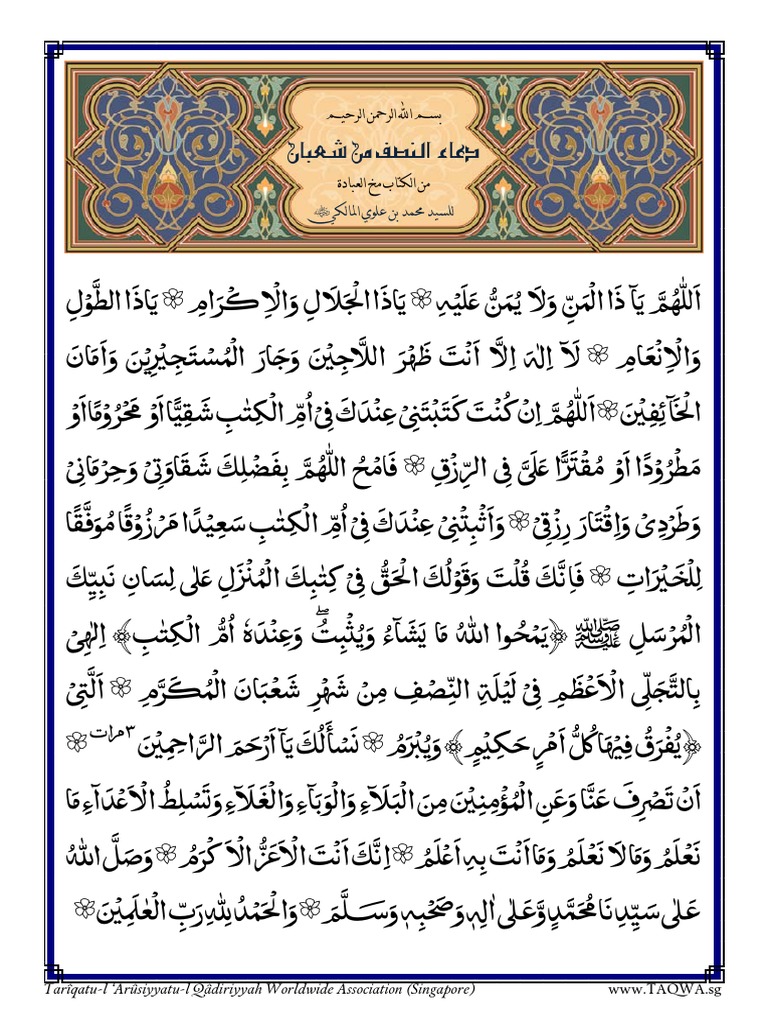 بسم الله الرحمن الرحيم
دعاء النصف من شعبان
من الكتاب مخ العبادة
للسيد محمد بن علوي المالكي
اَللّٰهُمَّ يَآ ذَا الْمَنِّ وَلَا يُمَنُّ عَلَيْهِ ۞ يَاذَا الْجَلَالِ وَالْاِكْرَامِ ۞ يَاذَا الطَّوْلِ
وَالْاِنْعَامِ ۞ لَآ اِلٰهَ اِلَّا اَنْتَ ظَهْرَ اللَّاجِيْنَ وَجَارَ الْمُسْتَجِيْرِيْنَ وَاَمَانَ
الْخَآئِفِيْنَ ۞ اَللّٰهُمَّ اِنْ كُنْتَ كَتَبْتَنِيْ عِنْدَكَ فِيْ اُمِّ الْكِتٰبِ شَقِيًّا اَوْ مَحْرُوْمًا اَوْ
مَطْرُوْدًا اَوْ مُقْتَرًّا عَلَيَّ فِى الرِّزْقِ ۞ فَامْحُ اللّٰهُمَّ بِفَضْلِكَ شَقَاوَتِيْ وَحِرْمَانِيْ
وَطَرْدِيْ وَاِقْتَارَ رِزْقِيْ ۞ وَاَثْبِتْنِيْ عِنْدَكَ فِيْ اُمِّ الْكِتٰبِ سَعِيْدًا مَرْزُوْقًا مُوَفَّقًا
لِلْخَيْرَاتِ ۞ فَاِنَّكَ قُلْتَ وَقَوْلُكَ الْحَقُّ فِيْ كِتٰبِكَ الْمُنْزَلِ عَلٰى لِسَانِ نَبِيِّكَ
الْمُرْسَلِ ﷺ ﴿يَمْحُوا اللّٰهُ مَا يَشَآءُ وَيُثْبِتُ ۖ وَعِنْدَهٗ اُمُّ الْكِتٰبِ﴾ اِلٰهِيْ
بِالتَّجَلِّى الْاَعْظَمِ فِيْ لَيْلَةِ النِّصْفِ مِنْ شَهْرِ شَعْبَانَ الْمُكَرَّمِ ۞ اَلَّتِيْ
﴿يُفْرَقُ فِيْهَا كُلُّ اَمْرٍ حَكِيْمٍ﴾ وَيُبْرَمُ ۞ نَسْأَلُكَ يَآ اَرْحَمَ الرَّاحِمِيْنَ ٣ مرات ۞
اَنْ تَصْرِفَ عَنَّا وَعَنِ الْمُؤْمِنِيْنَ مِنَ الْبَلَآءِ وَالْوَبَآءِ وَالْغَلَآءِ وَتَسْلِطُ الْاَعْدَآءِ مَا
نَعْلَمُ وَمَا لَا نَعْلَمُ وَمَا اَنْتَ بِهِ اَعْلَمُ ۞ اِنَّكَ اَنْتَ الْاَعَزُّ الْاَكْرَمُ ۞ وَصَلَّ اللّٰهُ
عَلٰى سَيِّدِنَا مُحَمَّدٍ وَّعَلٰى اٰلِهٖ وَصَحْبِهٖ وَسَلَّمَ ۞ وَالْحَمْدُ لِلّٰهِ رَبِّ الْعٰلَمِيْنَ ۞
Tarîqatu-l ‘Arûsiyyatu-l Qâdiriyyah Worldwide Association (Singapore) www.TAQWA.sg